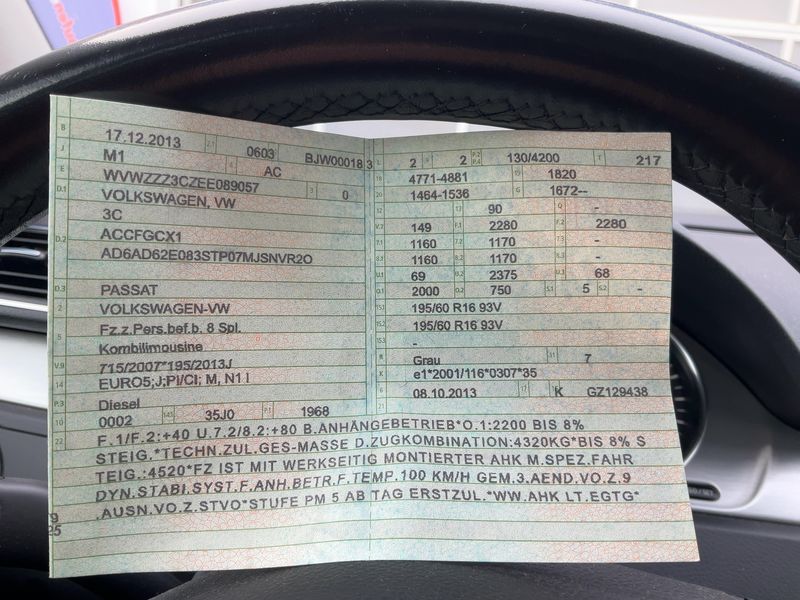 B 17.12.2013 2.1 0603 BJW00018 3
J M1 4 AC
E WVWZZZ3CZEE089057 3 0
D.1 VOLKSWAGEN, VW
3C
D.2 ACCFGCX1
AD6AD62E083STP07MJSNVR2O
D.3 PASSAT
2 VOLKSWAGEN-VW
5 Fz.z.Pers.bef.b. 8 Spl.
Kombilimousine
V.9 715/2007*195/2013J
14 EURO5;J;PI/CI; M, N1 I
P.3 Diesel
10 0002 14.1 35J0 P.1 1968
L 2 9 2 P.2 P.4 130/4200 T 217
18 4771-4881 19 1820
20 1464-1536 G 1672--
12 13 90 Q -
V.7 149 F.1 2280 F.2 2280
7.1 1160 7.2 1170 7.3 -
8.1 1160 8.2 1170 8.3 -
U.1 69 U.2 2375 U.3 68
O.1 2000 O.2 750 S.1 5 S.2 -
15.1 195/60 R16 93V
15.2 195/60 R16 93V
15.3 -
R Grau 11 7
K e1*2001/116*0307*35
6 08.10.2013 17 K 16 GZ129438
21
22 F.1/F.2:+40 U.7.2/8.2:+80 B.ANHÄNGEBETRIEB*O.1:2200 BIS 8%
STEIG.*TECHN.ZUL.GES-MASSE D.ZUGKOMBINATION:4320KG*BIS 8% S
TEIG.:4520*FZ IST MIT WERKSEITIG MONTIERTER AHK M.SPEZ.FAHR
DYN.STABI.SYST.F.ANH.BETR.F.TEMP.100 KM/H GEM.3.AEND.VO.Z.9
.AUSN.VO.Z.STVO*STUFE PM 5 AB TAG ERSTZUL.*WW.AHK LT.EGTG*